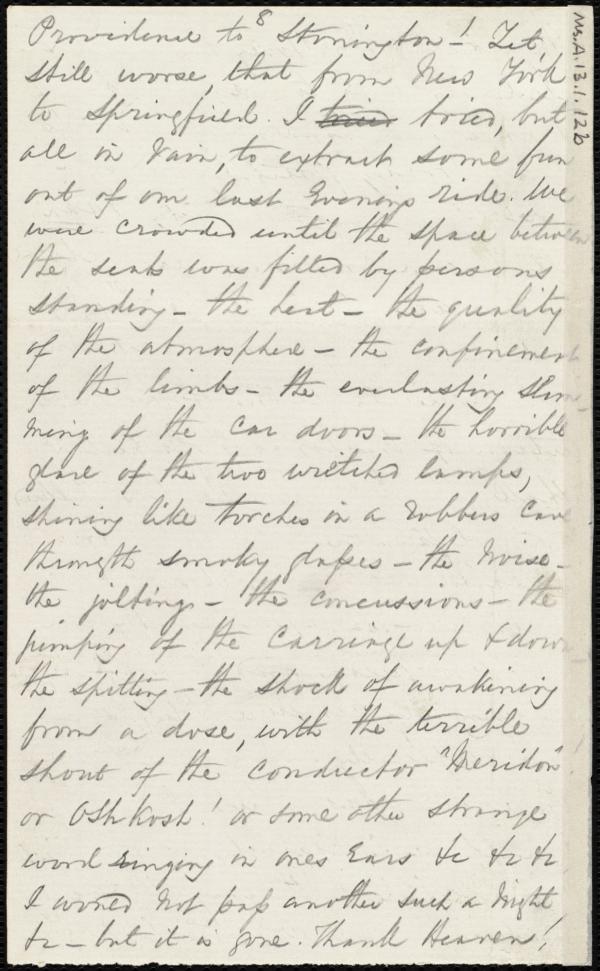 8
Ms.A.13.1.12b
Providence to Stonington! Yet
still worse, that from New York
to Springfield. I tried tried, but
all in vain, to extract some fun
out of our last Evenings ride. We
were crowded until the space between
the seats was filled by persons
standing – the heat – the quality
of the atmosphere – the confinement
of the limbs – the everlasting slam-
ming of the car doors – the horrible
glare of the two wretched lamps,
shining like torches in a robbers cave
through smoky glasses – the noise –
the jolting – the concussions – the
jumping of the carriage up & down –
the spitting – the shock of awakening
from a dose, with the terrible
shout of the conductor "Meridon"!
or Oshkosh! or some other strange
word ringing in ones Ears &c &c &c
I would not pass another such a Night
&c – but it is gone. Thank Heaven!